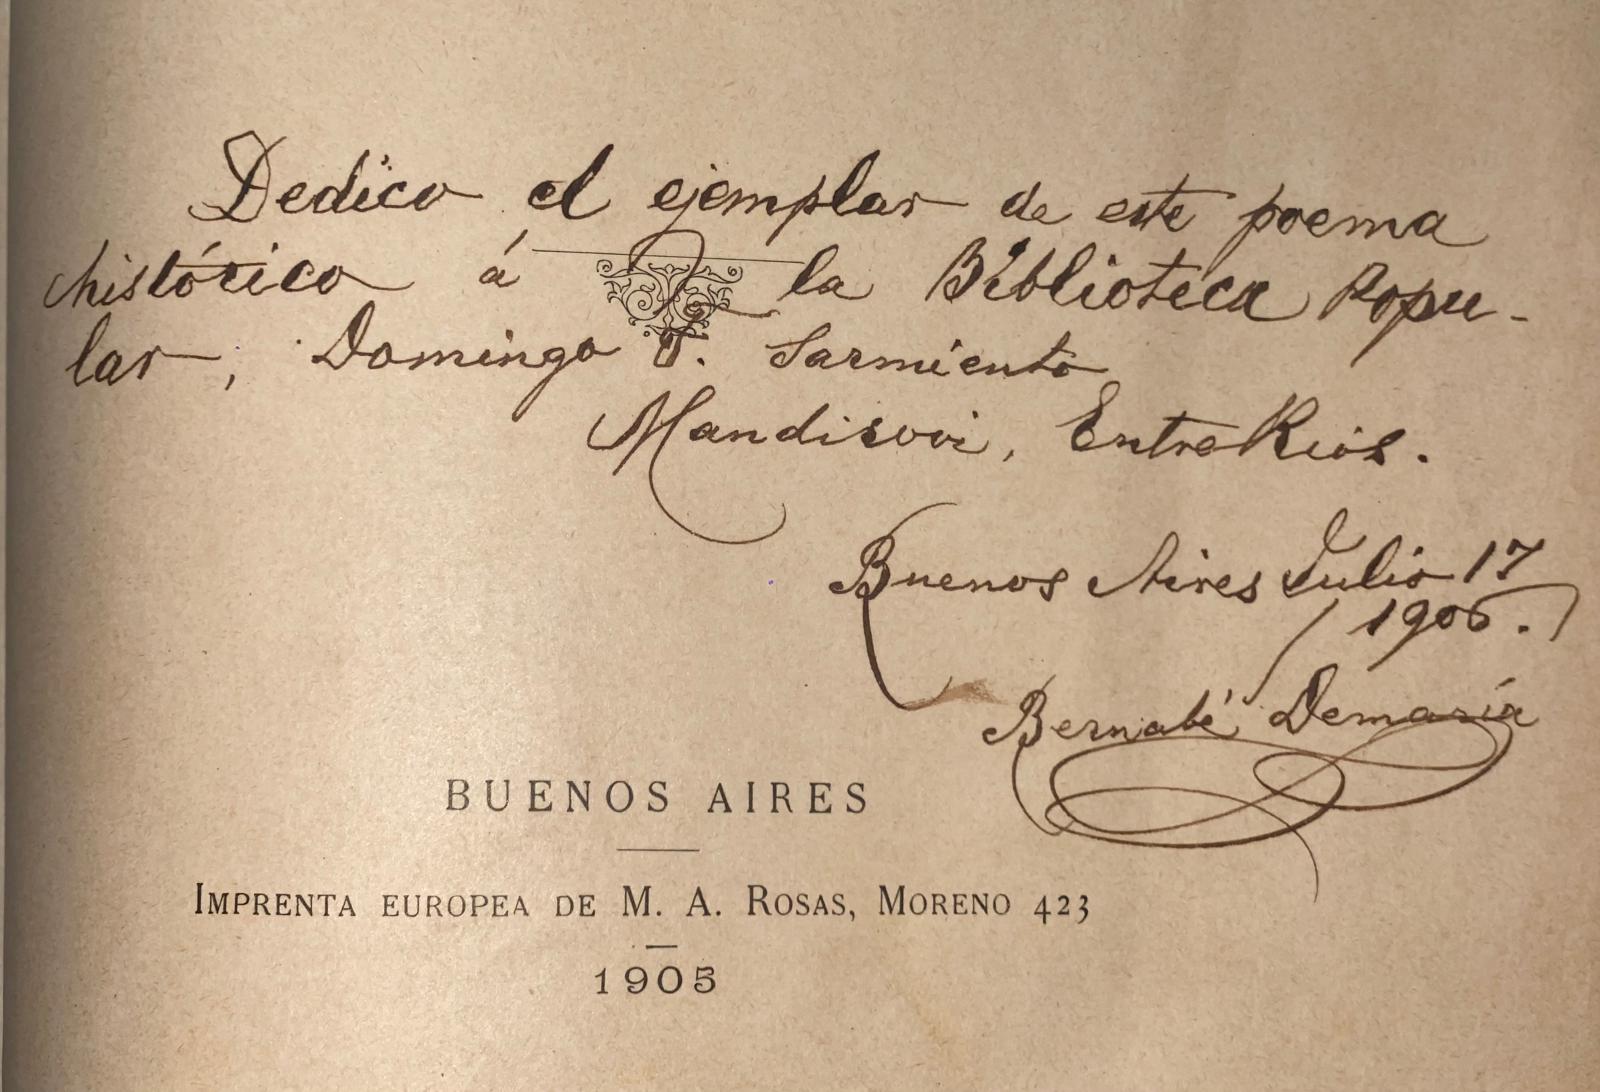 Dedico el ejemplar de este poema
histórico á la Biblioteca Popu-
lar, Domingo F. Sarmiento
Mandisovi, Entre Rios.
Buenos Aires Julio 17
1906.
Bernabé Demaría
BUENOS AIRES
IMPRENTA EUROPEA DE M. A. ROSAS, MORENO 423
1905